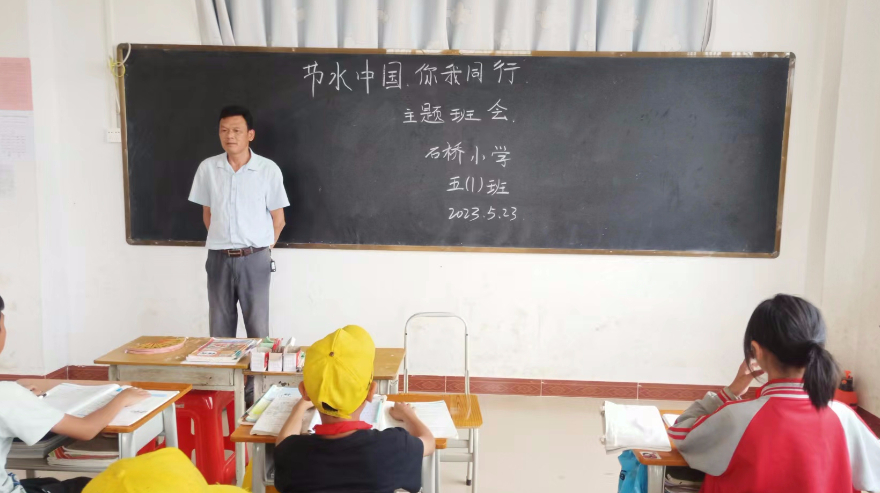 节水中国.你我同行.
主题班会.
石桥小学
五(1)班
2023.5.23